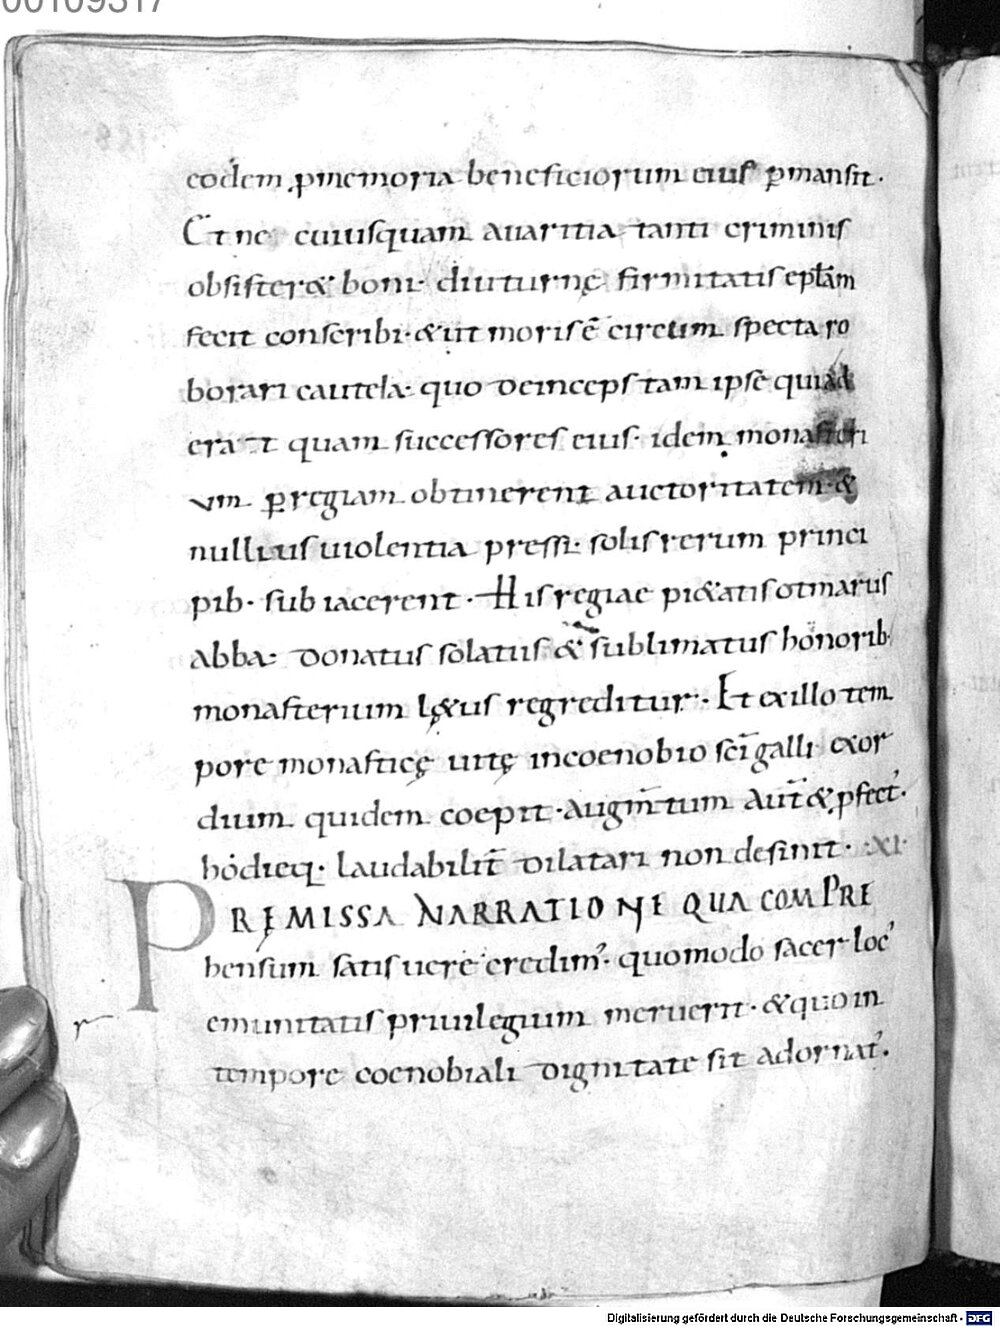 00109317
eodem p memoria beneficiorum eius p̲mansit.
Et ne cuiusquam auaritia tanti criminis
obsister& boni· diuturnę firmitatis eptłam
fecit conscribi· & ut moris ē circum specta ro
borari cautela· quo deinceps tam ipse qui ad
erat quam successores eius· idem monasteri
um p̲ regiam obtinerent auctoritatem· &
nullius uiolentia pressi· solis rerum princi
pib· sub iacerent · His regiae pi&atis otmarus
abba· donatus solatus· & sublimatus honorib·
monasterium l&us regreditur·· Et ex illo tem
pore monasticę uitę in coenobio sc̄i galli exor
dium quidem coepit · augm̄tum aut̄ & pfect'·
hodieq· laudabilit̄ dilatari non desinit· ·XI·
PRĘMISSA NARRATIONE QUA COMPRE
hensum satis uere credim'· quomodo sacer loc'
emunitatis priuilegium meruerit· & quo in
tempore coenobiali dignitate sit adornat'·
Digitalisierung gefördert durch die Deutsche Forschungsgemeinschaft - DFG